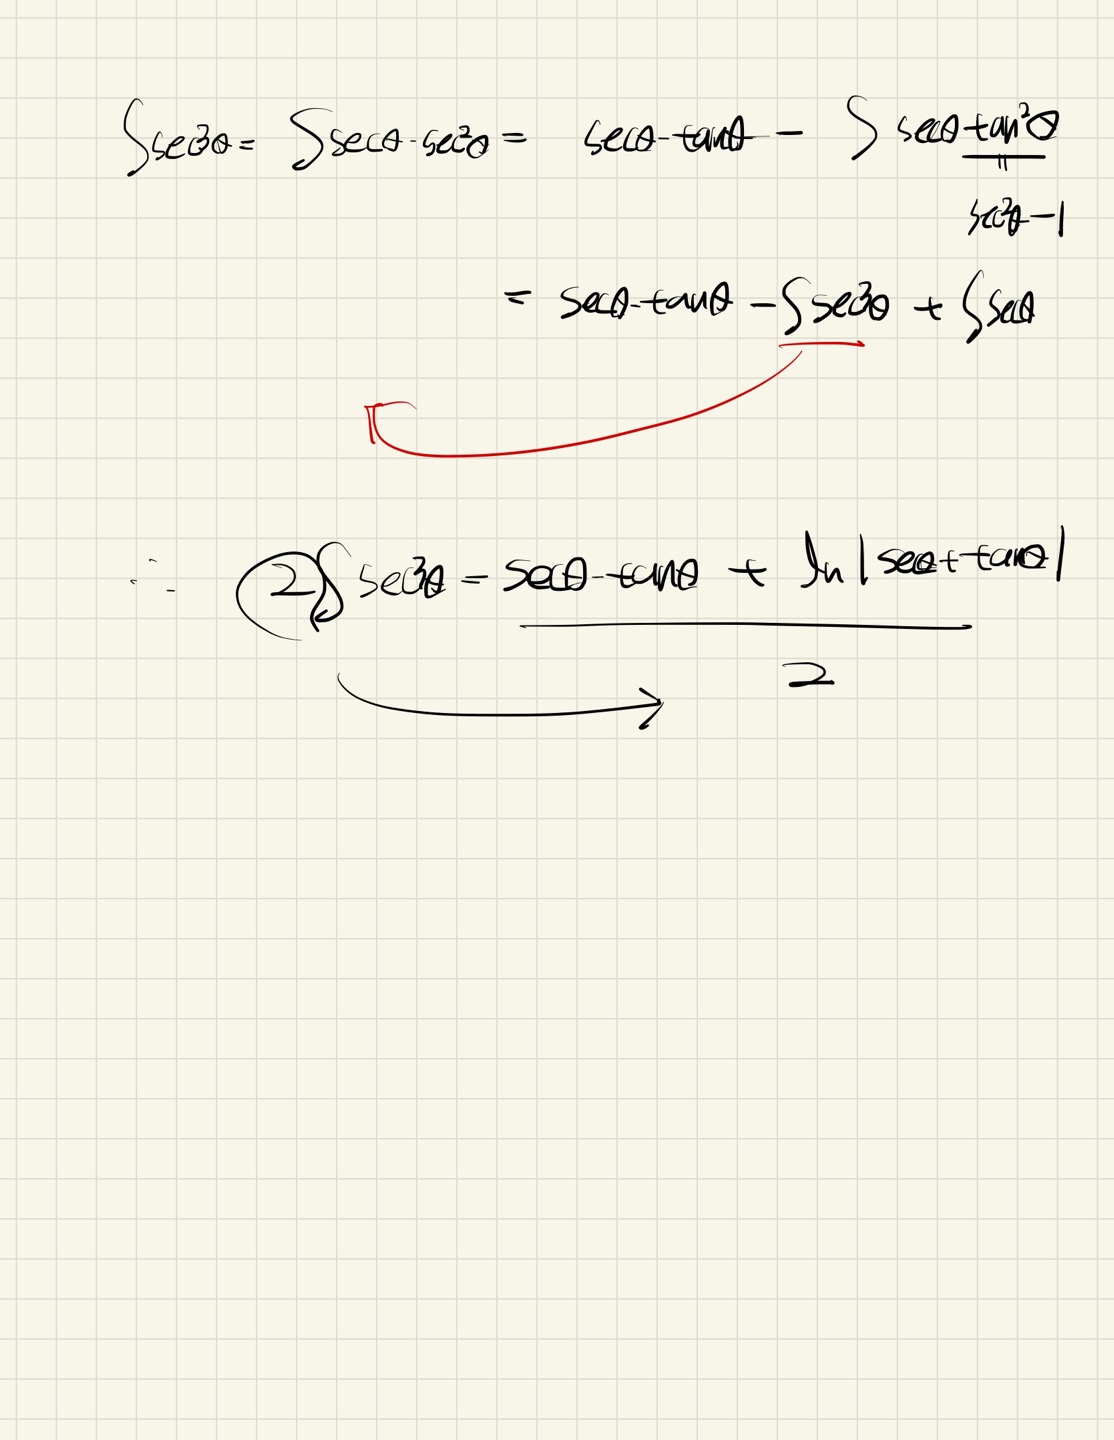 ∫sec³θ = ∫secθ·sec²θ = secθ·tanθ − ∫ secθ tan²θ
||
sec²θ−1
= secθ·tanθ − ∫sec³θ + ∫secθ
∴ 2∫ sec³θ = secθ·tanθ + ln|secθ+tanθ|
2